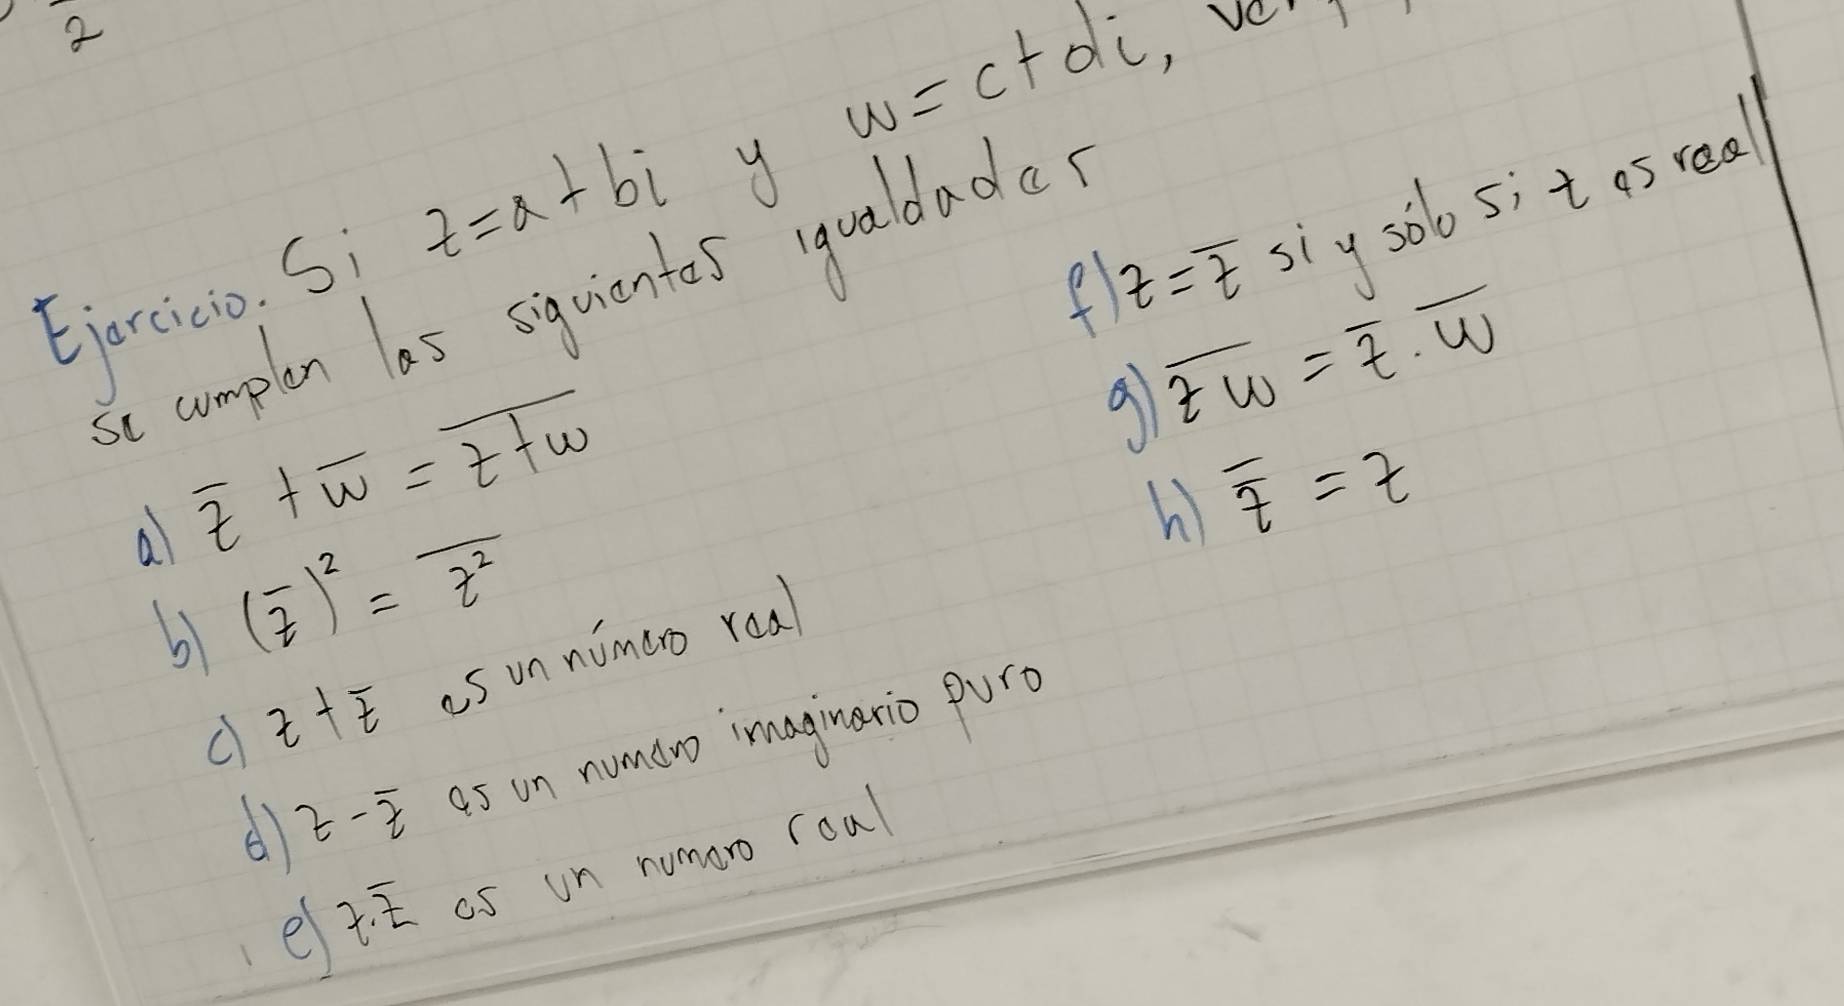 2
Ejercicio. Si z=a+bi y w=c+di,
se cumplen las siguientes igualdades
a) z̅ + w̅ = \overline{z+w}
b) (z̅)² = \overline{z²}
c) z+z̅ es un número real
d) z-z̅ es un numero imaginario puro
e) z.z̅ es un numero real
f) z=z̅ si y sólo si z es real
g) \overline{zw} = z̅ . w̅
h) \overline{z̅} = z